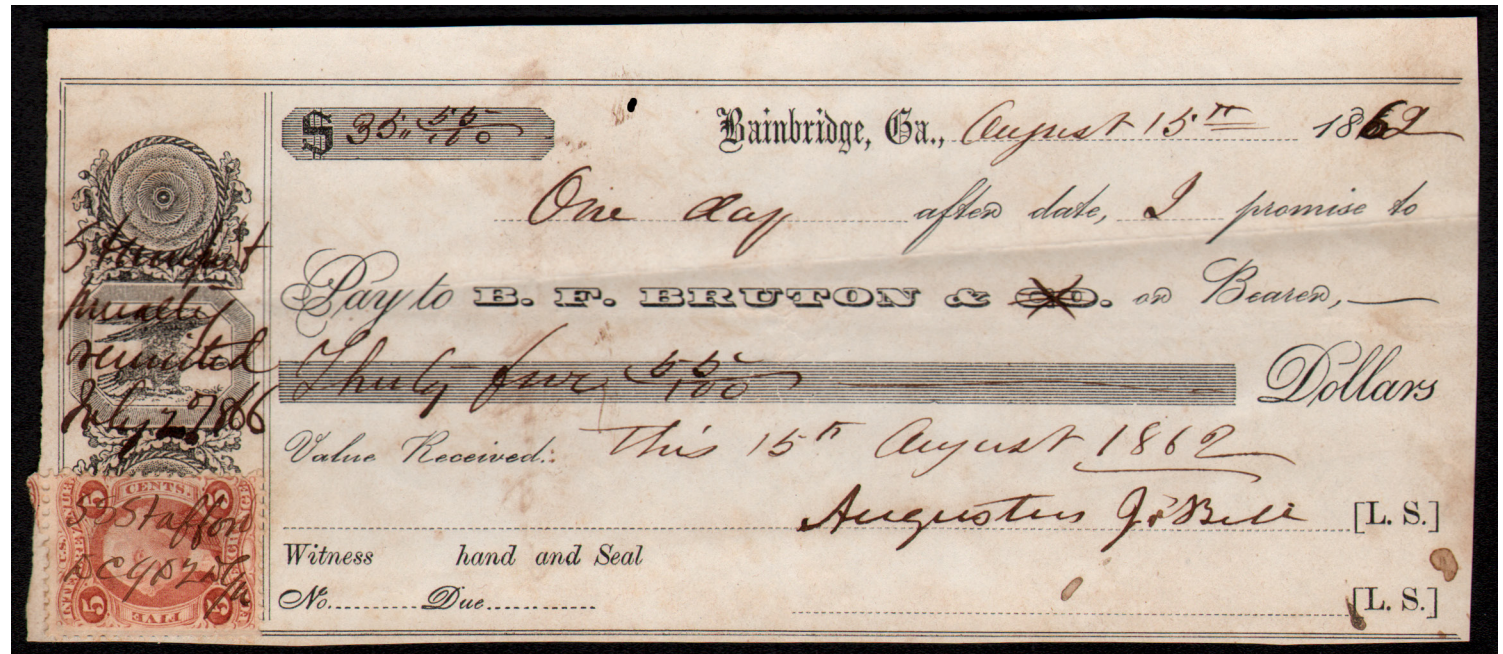 $ 35,, 55/100 Bainbridge, Ga., August 15th 1862
One day after date, I promise to
Pay to B. F. BRUTON & CO. or Bearer,
Thirty five 55/100 Dollars
Value Received. This 15th August 1862
Augustus J. Bell [L. S.]
Witness hand and Seal
No. Due [L. S.]
Stamp
remitted
July 27 1866
5 CENTS. 5
Stafford
5 FIVE 5